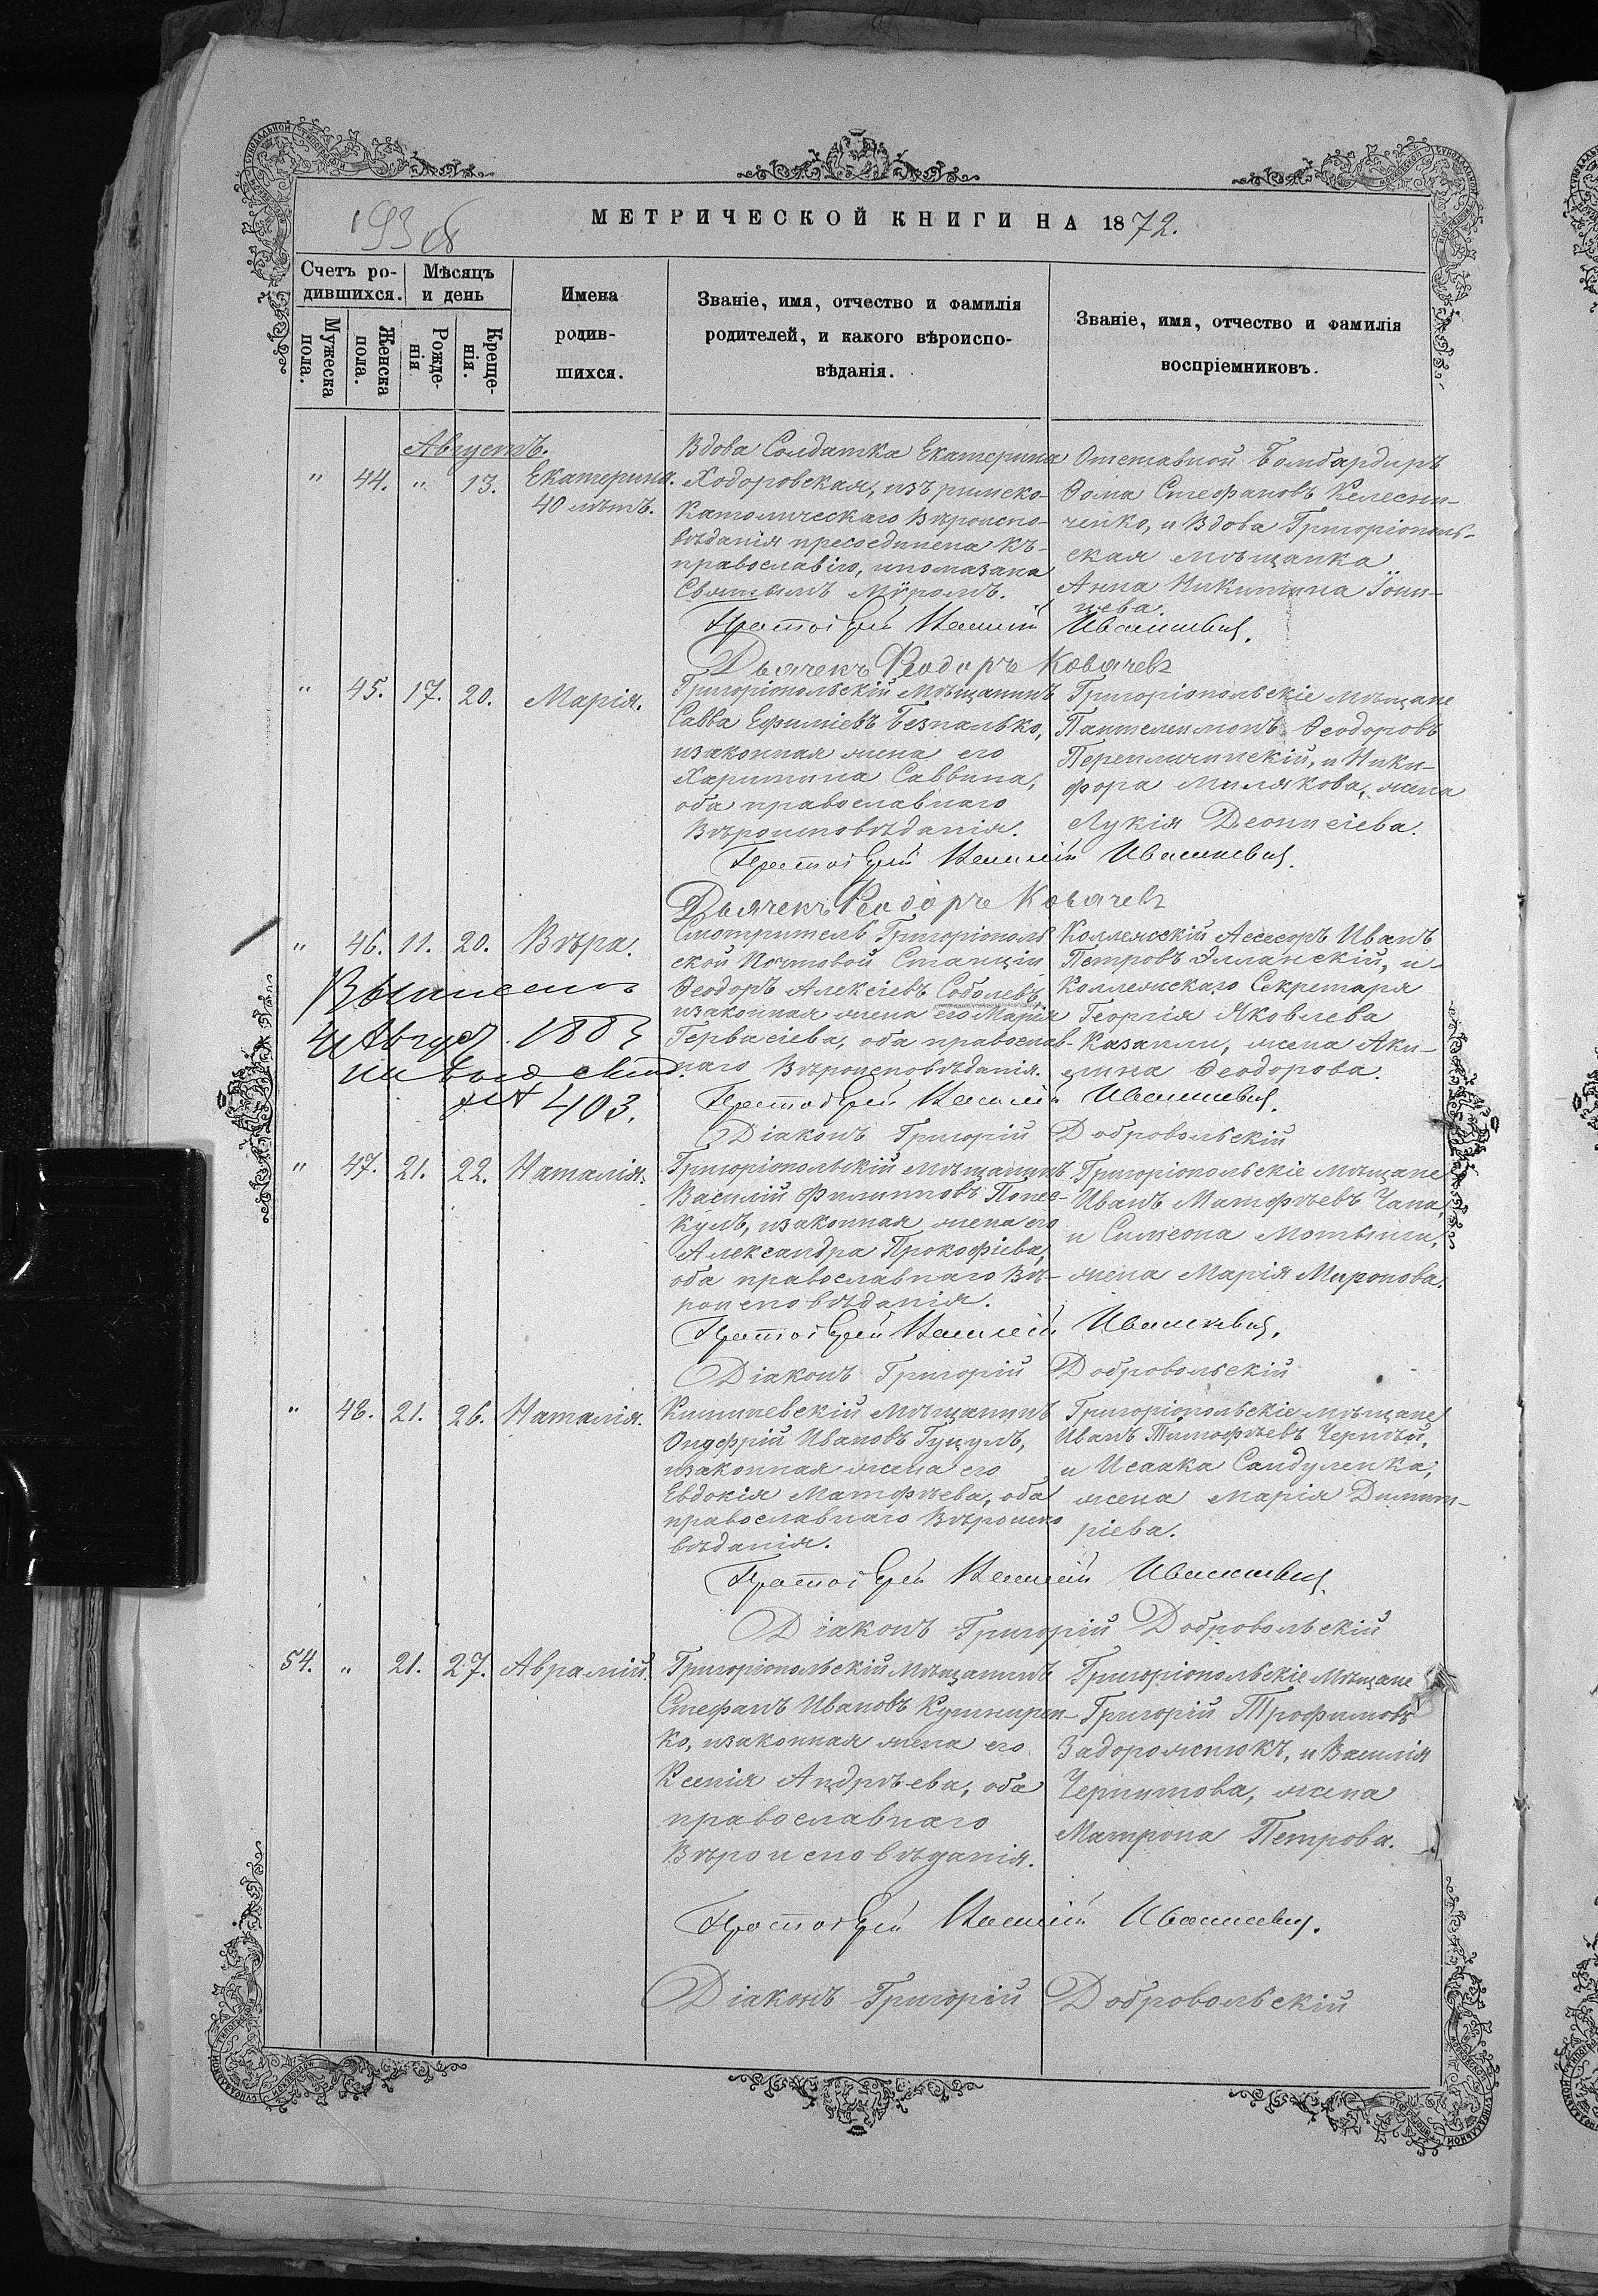 МЕТРИЧЕСКОЙ КНИГИ НА 1872.
193 об
Счетъ ро-
дившихся.
Мужеска
пола.
Женска
пола.
Мѣсяцъ
и день
Рожде-
нія
Креще-
нія.
Имена
родив-
шихся.
Званіе, имя, отчество и фамилія
родителей, и какого вѣроиспо-
вѣданія.
Званіе, имя, отчество и фамилія
воспріемниковъ.
Августъ.
" 44. " 13. Екатерина.
40 лѣтъ.
Вдова Солдатка Екатерина
Ходоровская, изъ римско-
Католическаго Вѣроиспо-
вѣданія пресоединена къ
православію, ипомазана
Святымъ Мѵромъ.
Отставной Бомбардиръ
Ѳома Стефановъ Келесни-
ченко, и Вдова Григоріополь-
ская мѣщанка
Анна Никитина
Протоіерей Василій Ивашкевич.
Дьячекъ Ѳеодоръ Ковачевъ
" 45. 17. 20. Марія.
Григоріопольскій мѣщанинъ
Савва Ефиміевъ Безпалько,
изаконная жена его
Харитина Саввина,
оба православнаго
Вѣроисповѣданія.
Григоріопольскіе мѣщане
Пантелимонъ Ѳеодоровъ
Перепличинскій, и Ники-
фора Милякова, жена
Лукія Деонисіева.
Протоіерей Василій Ивашкевич.
Дьячекъ Ѳеодоръ Ковачевъ
" 46. 11. 20. Вѣра.
Смотритель Григоріополь
ской Почтовой Станціи
Ѳеодоръ Алексіевъ Соболевъ,
изаконная жена его Марія
Гервасіева, оба православ-
наго Вѣроисповѣданія.
Коллежскій Асессоръ Иванъ
Петровъ Элланскій, и
Коллежскаго Секретаря
Георгія Яковлева
Казанли, жена Аки-
лина Ѳеодорова.
4 Август. 1883
403.
Протоіерей Василій Ивашкевич.
Діаконъ Григорій Добровольскій
" 47. 21. 22. Наталія.
Григоріопольскій мѣщанинъ
Василій Филипповъ
кулъ, изаконная жена его
Александра Прокофіева,
оба православнаго Вѣ-
роисповѣданія.
Григоріопольскіе мѣщане
Иванъ Матфѣевъ Чапа,
и Симеона
жена Марія Миронова.
Протоіерей Василій Ивашкевич.
Діаконъ Григорій Добровольскій
" 48. 21. 26. Наталія.
Кишиневскій мѣщанинъ
Онуфрій Ивановъ Гуцулъ,
изаконная жена его
Евдокія Матфѣева, оба
православнаго Вѣроиспо
вѣданія.
Григоріопольскіе мѣщане
Иванъ Тимофѣевъ Чернѣй,
и Исаака Сандуленка,
жена Марія Димит-
ріева.
Протоіерей Василій Ивашкевич.
Діаконъ Григорій Добровольскій
54. " 21. 27. Аврамій.
Григоріопольскій Мѣщанинъ
Стефанъ Ивановъ Кушнирен-
ко, изаконная жена его
Ксенія Андрѣева, оба
православнаго
Вѣроисповѣданія.
Григоріопольскіе Мѣщане
Григорій Трофимовъ
Задорожнюкъ, и Василія
Чернитова, жена
Матрона Петрова.
Протоіерей Василій Ивашкевич.
Діаконъ Григорій Добровольскій